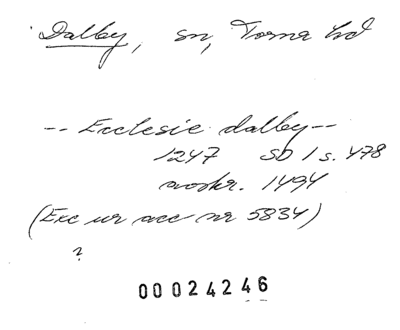 Dalby, sn, Torna hd
-- Ecclesie dalby --
1247 SD 1 s. 478
avskr. 1494
(Exc ur acc nr 5834)
?
00024246